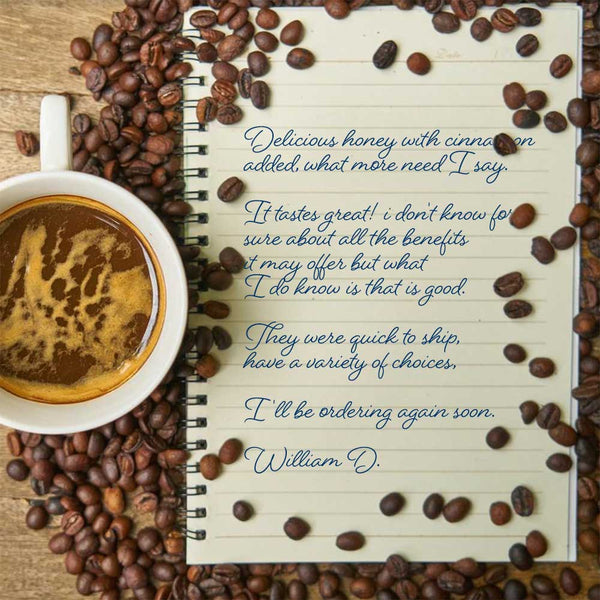 Delicious honey with cinnamon
added, what more need I say.
It tastes great! i don't know for
sure about all the benefits
it may offer but what
I do know is that is good.
They were quick to ship,
have a variety of choices,
I'll be ordering again soon.
William D.